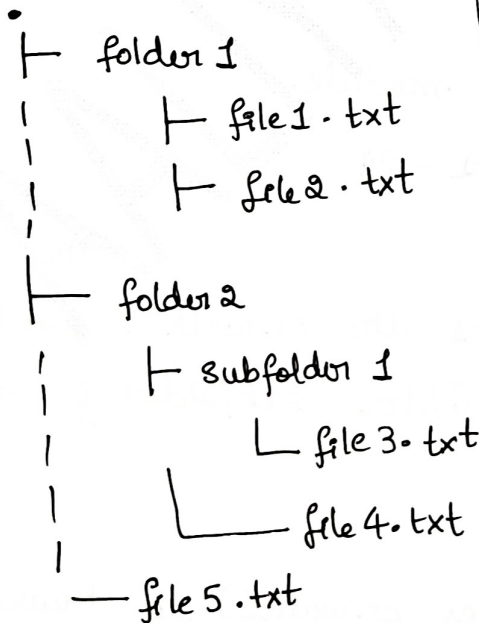 .
folder 1
file 1.txt
file 2.txt
folder 2
subfolder 1
file 3.txt
file 4.txt
file 5.txt